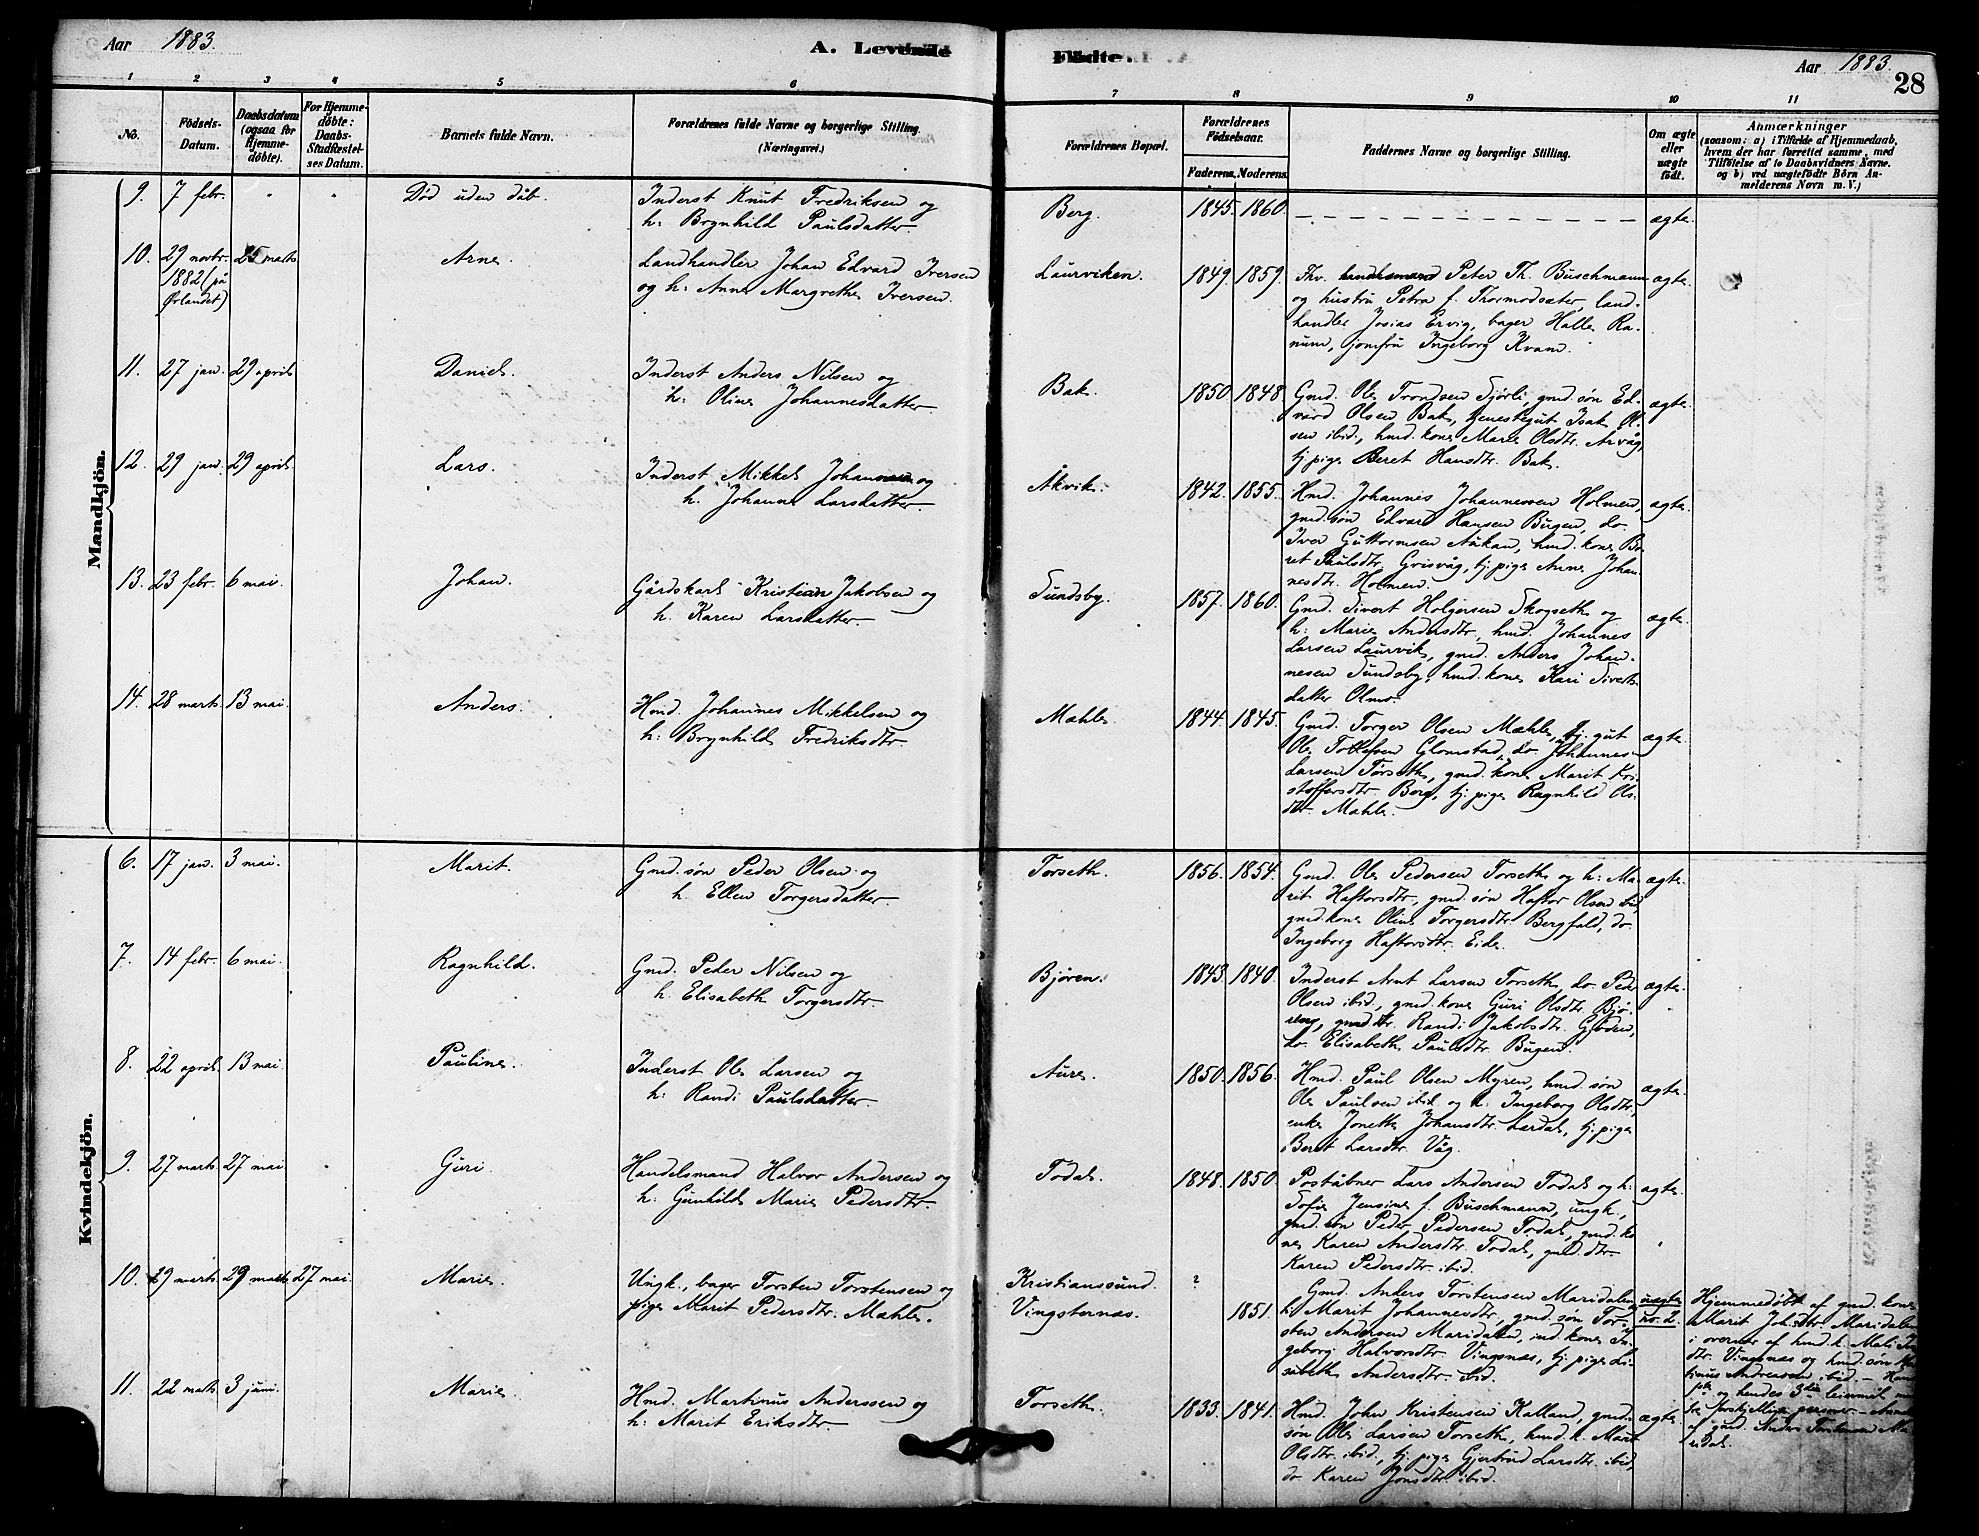 Aar 1883.
A. Levende Fødte.
Aar 1883.
28
1 2 3 4 5 6 7 8 9 10 11
No.
Födsels-Datum.
Daabsdatum (ogsaa for Hjemme-döbte).
For Hjemme-döbte: Daabs-Stadfæstel-ses Datum.
Barnets fulde Navn.
Forældrenes fulde Navne og borgerlige Stilling. (Næringsvei.)
Forældrenes Bopæl.
Forældrenes Födselsaar.
Faderens. Moderens.
Faddernes Navne og borgerlige Stilling.
Om ægte eller uægte födt.
Anmærkninger
(saasom: a) i Tilfælde af Hjemmedaab,
hvem der har forrettet samme, med
Tilföielse af to Daabsvidners Navne.
og b) ved uægtefödte Börn An-
melderens Navn m. V.)
Mandkjön.
9. 7 febr. " " Död uden dåb. Inderst Knut Fredriksen og
h: Brynhild Paulsdatter.
Berg. 1845. 1860. ægte.
10. 29 novbr. 1882 (på Ørlandet) 25 marts Arne. Landhandler Johan Edvard Iversen
og h: Anna Margrethe Iversen.
Laurviken. 1849. 1859. Peter Th. Buschmann
og hustru Petra f. Thormodsæter, land-
handler Josias Ervig, bager Halle Ra-
num, jomfru Ingeborg Kvam.
ægte.
11. 27 jan. 29 april. Daniel. Inderst Anders Nilsen og
h: Oline Johannesdatter.
Bak. 1850. 1848. Gmd. Ole Trondsen Sjørli, gmd. søn Ed-
vard Olsen Bak, tjenestegut Isak Ol-
sen ibid., hmd. kone Marie Olsdtr. Arvåg,
tj. pige Beret Hansdtr. Bak.
ægte.
12. 29 jan. 29 april. Lars. Inderst Mikkel Johannesen og
h. Johanne Larsdatter.
Åkvik. 1842. 1855. Hmd. Johannes Johannessen Holmen,
gmd. søn Edvard Hansen Bugen, do.
Iver Guttormsen Aukan, hmd. kone Be-
ret Paulsdtr. Grisvåg, tj. pige Anne Johan-
nesdtr. Holmen.
ægte.
13. 23 febr. 6 mai. Johan. Gårdskarl Kristian Jakobsen og
h. Karen Larsdatter.
Sundsby. 1857. 1860. Gmd. Sivert Holgersen Skogseth og
h: Marie Andersdtr., hmd. Johannes
Larsen Laurvik, gmd. Anders Johan-
nesen Sundsby, hmd. kone Kari Siverts-
datter Olmo.
ægte.
14. 28 marts 13 mai. Anders. Hmd. Johannes Mikkelsen og
h: Brynhild Fredriksdtr.
Mæhle. 1844. 1845. Gmd. Torger Olsen Mæhle, tj. gut
Ole Tollefsen Glomstad, do. Johannes
Larsen Torseth, gmd. kone Marit Kri-
stoffersdtr. Berg, tj. pige Ragnhild Ols-
dtr. Mæhle.
ægte.
Kvindekjön.
6. 17 jan. 3 mai. Marit. Gmd. søn Peder Olsen og
h. Ellen Torgersdatter.
Torseth. 1856. 1854. Gmd. Ole Pedersen Torseth og h: Ma-
rit Haftorsdtr., gmd. søn Haftor Olsen ibid,
gmd. kone Oline Torgersdtr. Bergfald, do.
Ingeborg Haftorsdtr. Eide.
ægte.
7. 14 febr. 6 mai. Ragnhild. Gmd. Peder Nilsen og
h. Elisabeth Torgersdtr.
Bjøren. 1843. 1840. Inderst Arnt Larsen Torseth, do. Peder
Olsen ibid., gmd. kone Guri Olsdtr. Bjø-
ren, gmd. dtr. Randi Jakobsdtr.
do. Elisabeth Paulsdtr. Bugen.
ægte.
8. 22 april. 13 mai. Pauline. Inderst Ole Larsen og
h: Randi Paulsdatter.
Aure. 1850. 1856. Hmd. Paul Olsen Myren, hmd. søn
Ole Paulsen ibid og h: Ingeborg Olsdtr,
enke Jonetta Johansdtr. Lerdal, tj. pige
Beret Larsdtr. Våg.
ægte.
9. 27 marts 27 mai Guri. Handelsmand Halvor Andersen og
h: Gunhild Marie Pedersdtr.
Todal. 1848. 1850. Poståbner Lars Andersen Todal og h:
Sofie Jensine f. Buschmann, ungk.,
gmd. søn Peder Pedersen Todal, gmd. ko-
ne Karen Andersdtr. Todal, gmd. dtr.
Karen Pedersdtr. ibid.
ægte.
10. 29 marts 29 marts. 27 mai. Marie. Ungk., bager Torsten Torstensen og
pige Marit Pedersdtr. Mæhle.
Kristianssund.
Vingsternæs.
? 1851. Gmd. Anders Torstensen Maridalen
h: Marit Johannesdtr., gmd. søn Tor-
sten Andersen Maridalen, ind. kone In-
geborg Halvorsdtr. Vingsnæs, tj. pige Li-
sabeth Andersdtr. ibid.
uægte no. 2.
Hjemmedøbt af gmd. kone
Marit Johsdtr. Maridalen
i overvær af hmd. k. Mali
dtr. Vingsnæs og hmd. søn
Andreassen ibid. –
og hendes 3die leiermål med
forskjellige personer –
af gmd. Anders Torstensen Ma-
ridal.
11. 22 marts 3 juni. Marie. Hmd. Martinus Anderssen og
h: Marit Eriksdtr.
Torseth. 1833. 1841. Hmd. John Kristensen Kalland, gmd.
søn Ole Larsen Torseth, hmd. k. Marit
Olsdtr. ibid., tj. pige Gjertrud Larsdtr. ibid,
do. Karen Jonsdtr. ibid.
ægte.